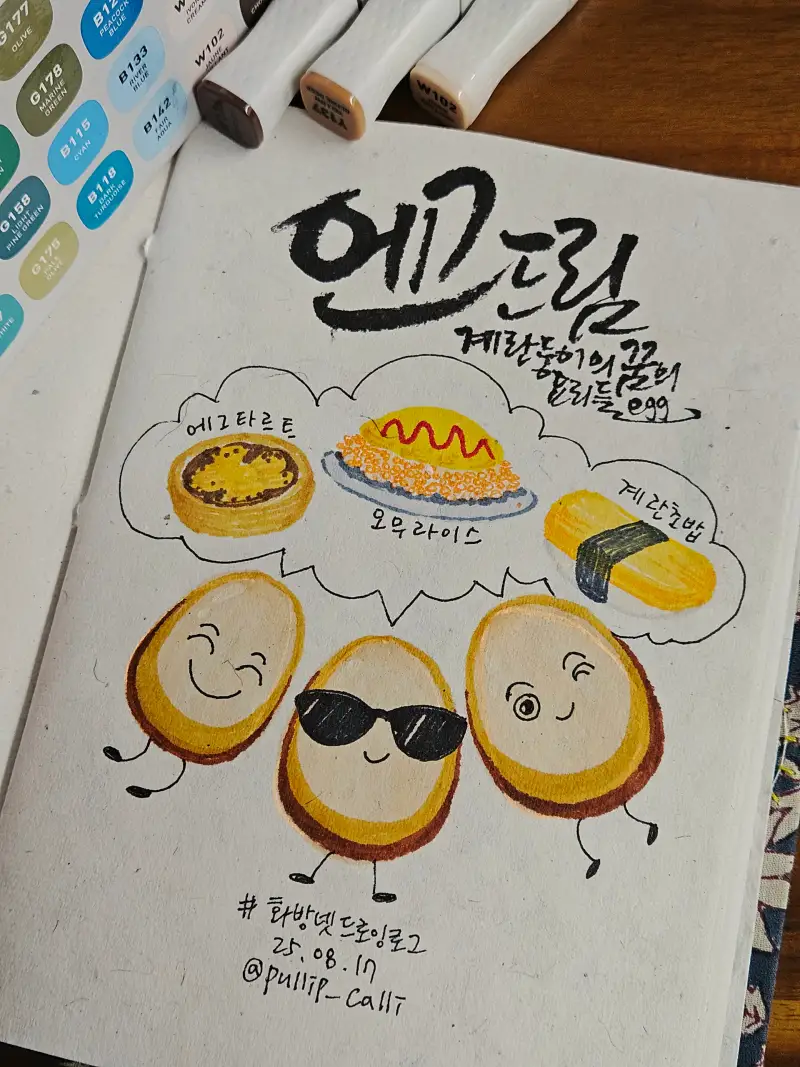 G177
OLIVE
B12
PEACOCK
BLUE
G178
MARINE
GREEN
B133
RIVER
BLUE
W102
B115
CYAN
B142
FAIR
AQUA
G158
LIGHT
PINE GREEN
B118
DARK
TURQUOISE
G176
PALE
OLIVE
W102
에그드림
계란둥이의 꿈의
요리들 egg
에그타르트
오무라이스
계란초밥
# 화방넷드로잉로그
25.08.17
@pullip_calli